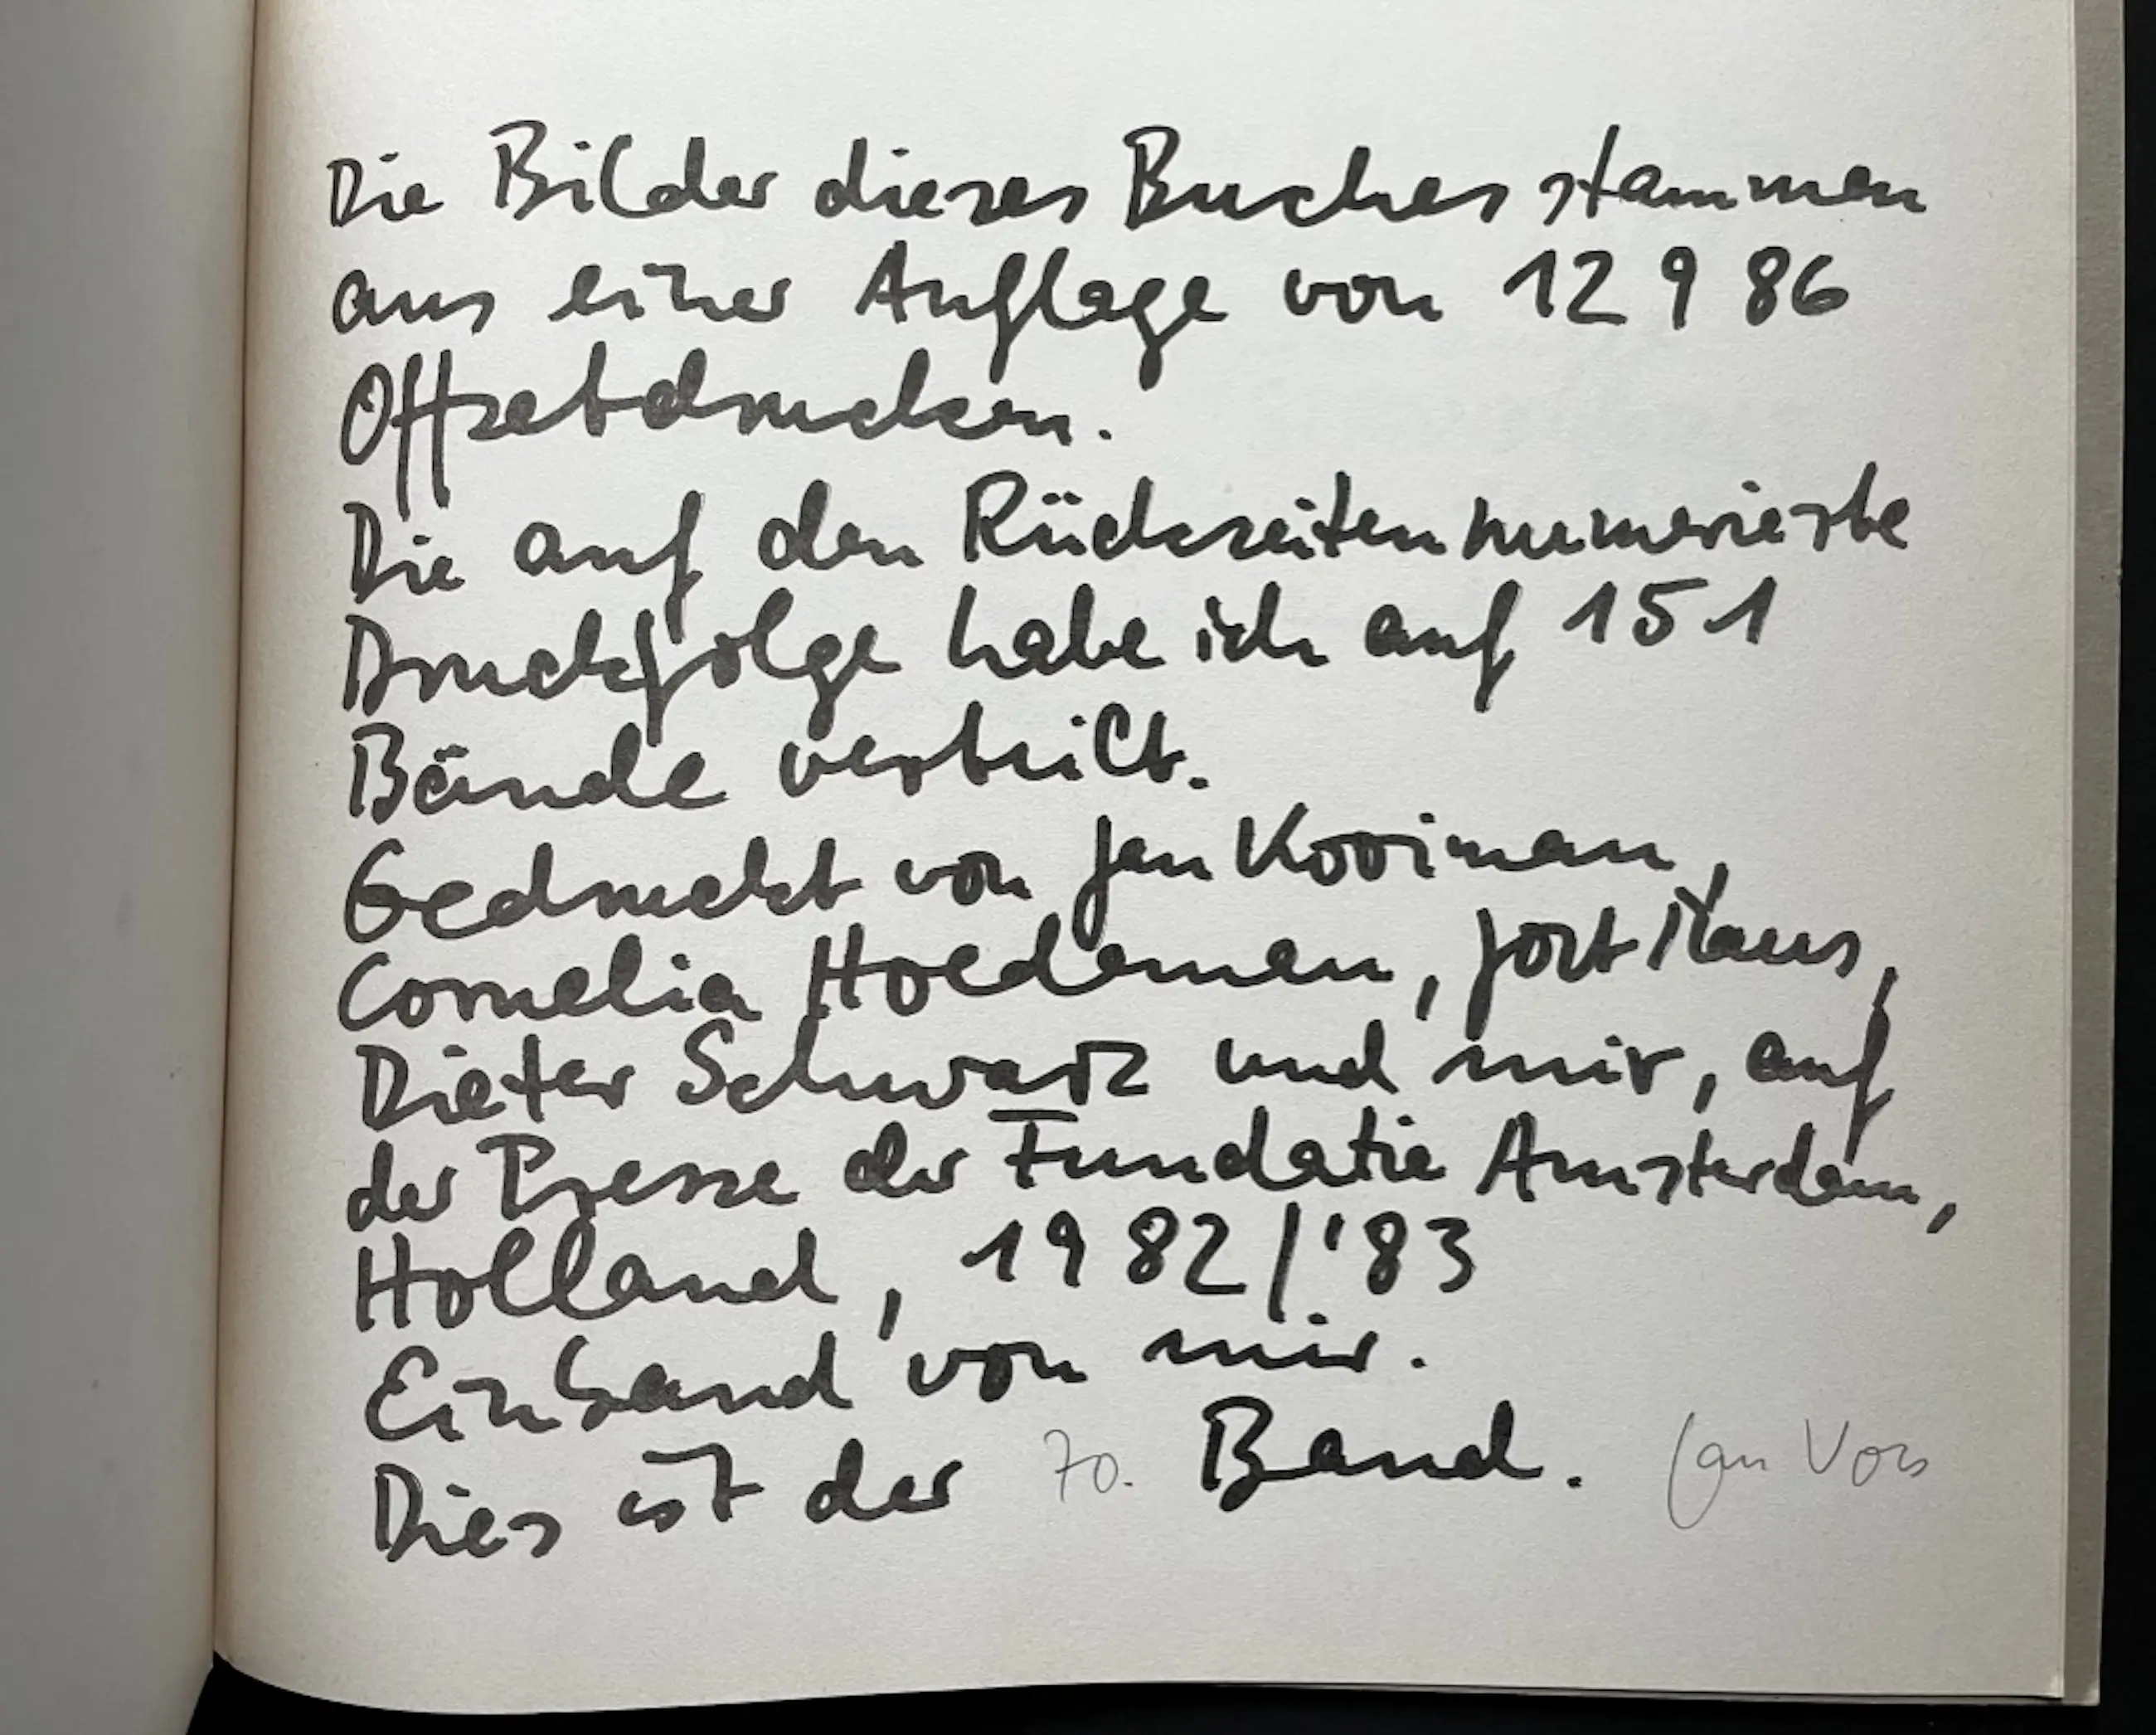 Die Bilder dieses Buches stammen
aus einer Auflage von 12 9 86
Offsetdrucken.
Die auf den Rückseiten numerierte
Druckfolge habe ich auf 151
Bände verteilt.
Gedruckt von Jan Kooiman,
Cornelia Hoedeman, Jort
Dieter Schwarz und mir, auf
der Presse der Fundatie Amsterdam,
Holland, 1982/'83
Einband von mir.
Dies ist der 70. Band. Jan Voss